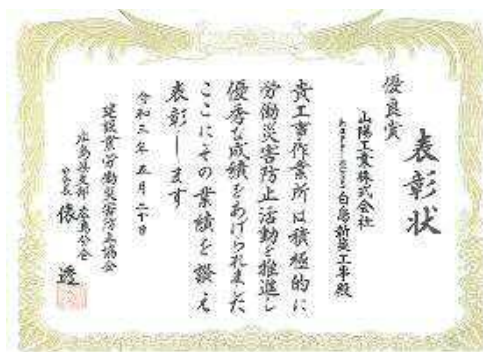 表彰状
優良賞
山陽工業株式会社
白島新築工事殿
貴工事作業所は積極的に
労働災害防止活動を推進し
優秀な成績をあげられました
ここにその業績を讃え
表彰します
令和三年五月二十日
建設業労働災害防止協会
広島県支部 広島分会
分会長 俵 透